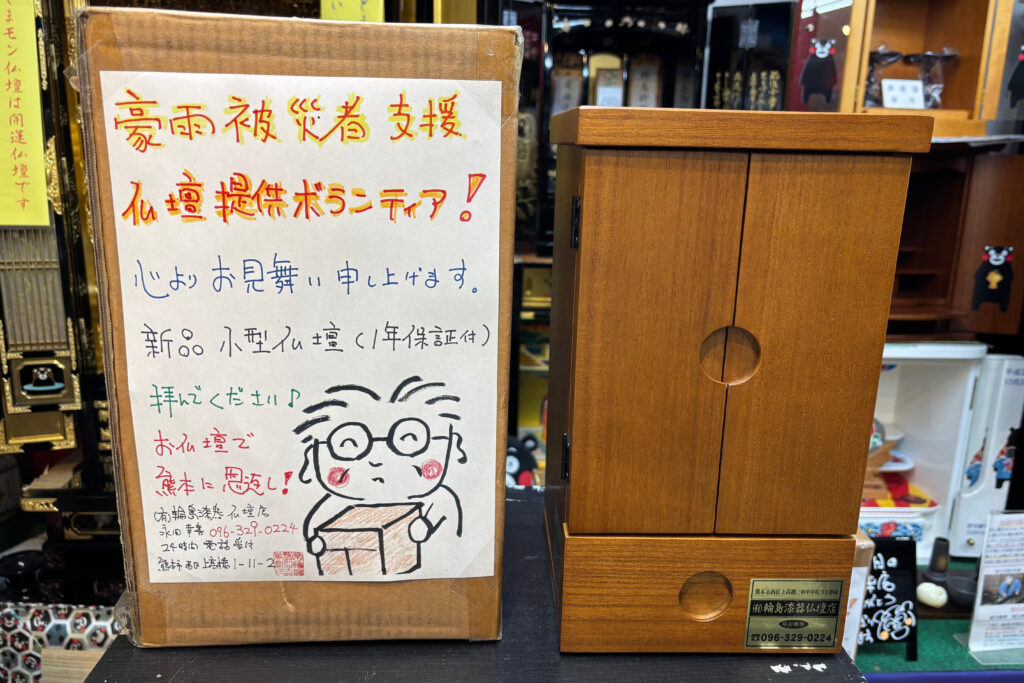 くまモン仏壇は開運仏壇です
豪雨被災者支援
仏壇提供ボランティア!
心よりお見舞い申し上げます。
新品 小型仏壇(1年保証付)
拝んでください♪
お仏壇で
熊本に恩返し!
(有)輪島漆器仏壇店
永田幸喜 096-329-0224
24時間 電話受付
熊本市西区上高橋1-11-2
(有)輪島漆器仏壇店
年中無休
☎096-329-0224